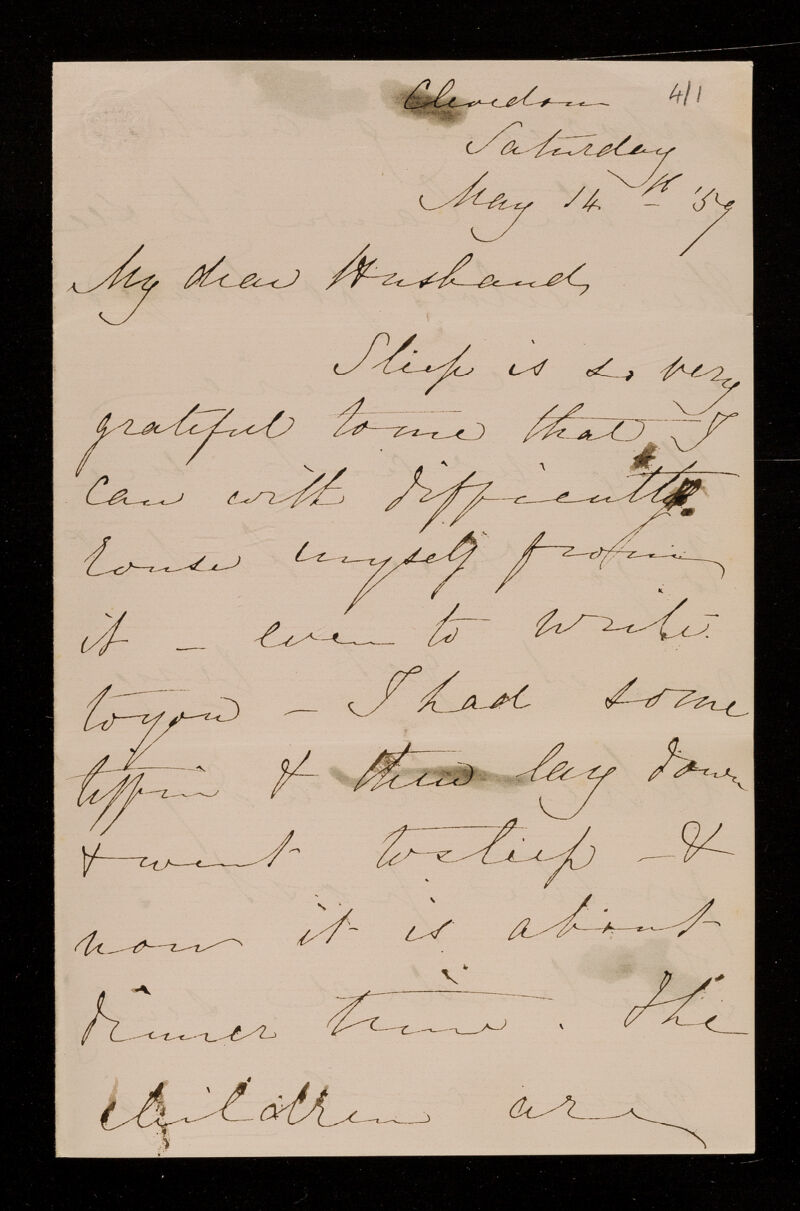 Clevedon
4/1
Saturday
May 14th '59
My dear Husband
Sleep is so very
grateful to me that I
can with difficulty
rouse myself from
it - even to write
to you - I had some
tiffin & then lay down
& went to sleep - &
now it is about
dinner time. The
children are